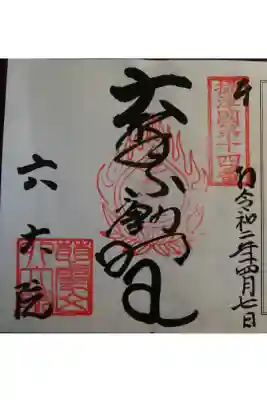 令和二年四月七日
摂津国第十四番
大聖不動明王
六大院